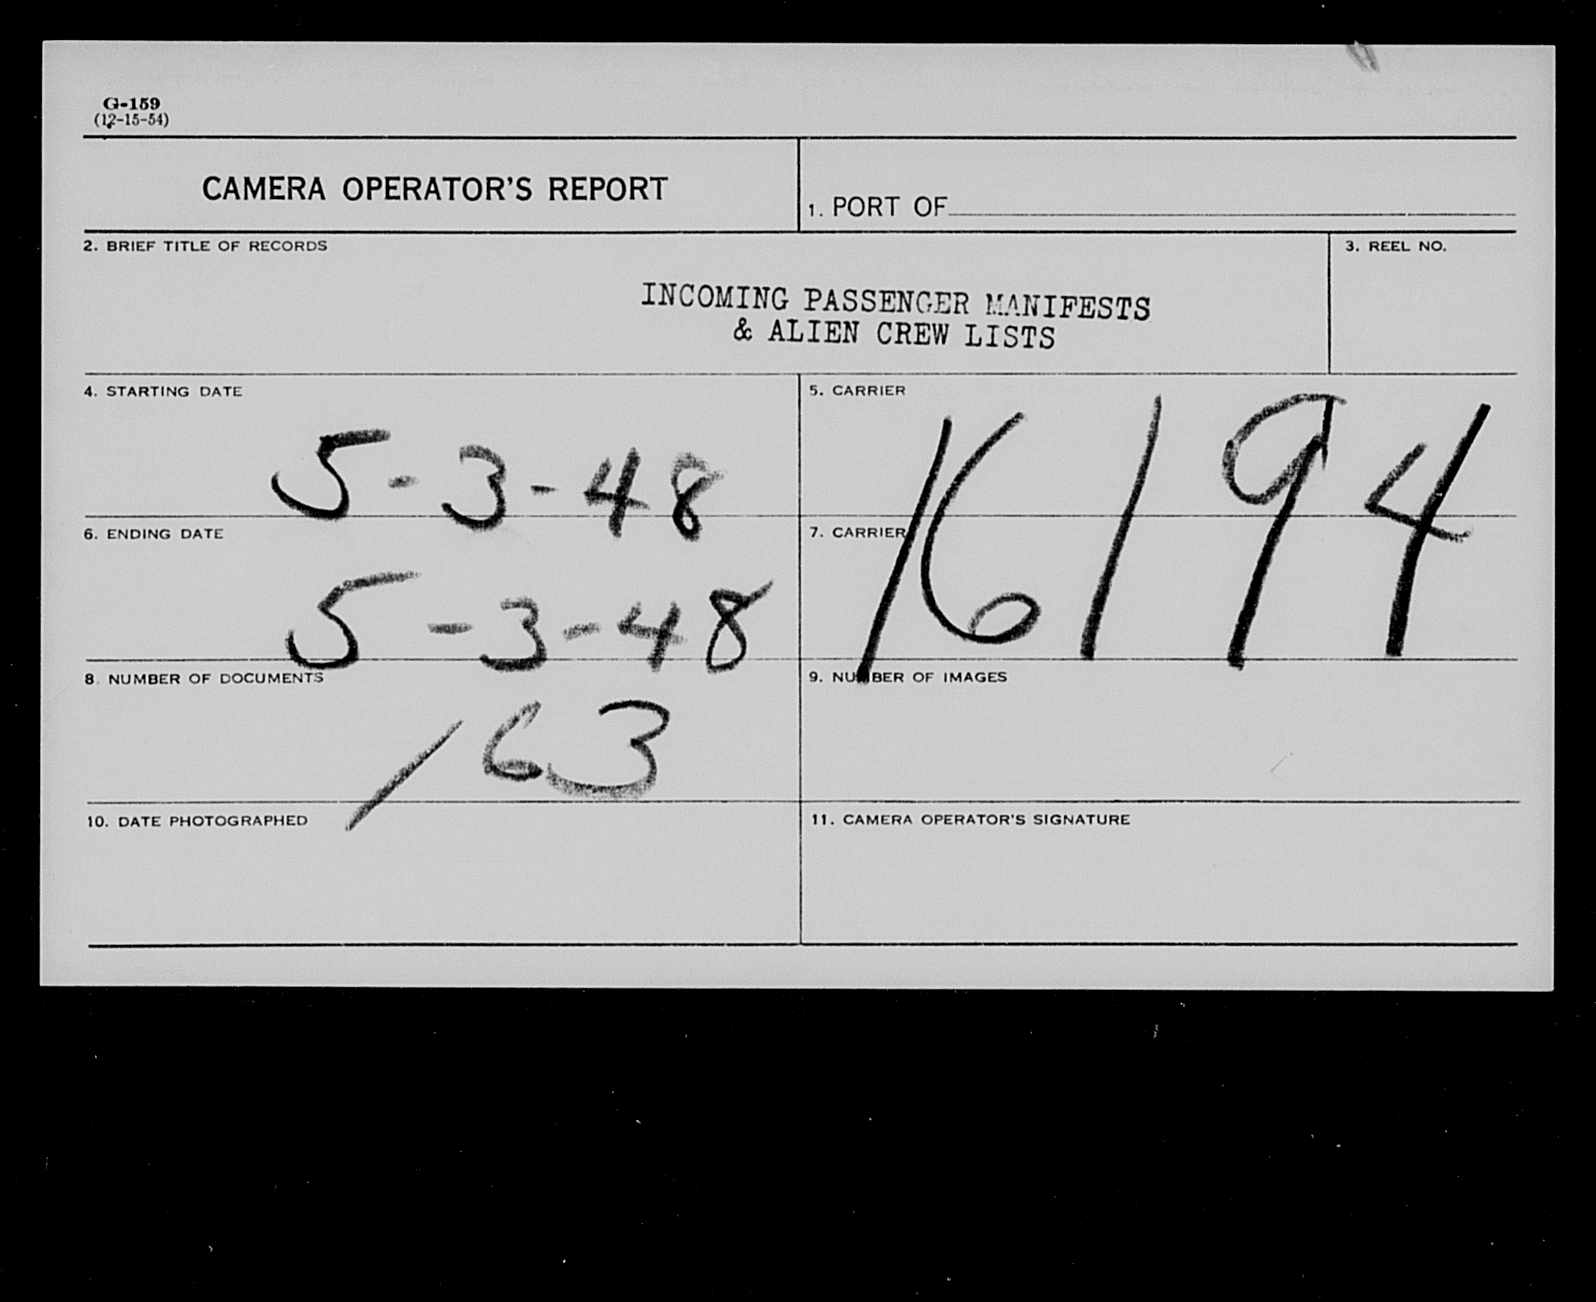 G-159
(12-15-54)
CAMERA OPERATOR'S REPORT
1. PORT OF
2. BRIEF TITLE OF RECORDS
3. REEL NO.
INCOMING PASSENGER MANIFESTS
& ALIEN CREW LISTS
4. STARTING DATE
5-3-48
5. CARRIER
16194
6. ENDING DATE
5-3-48
7. CARRIER
8. NUMBER OF DOCUMENTS
163
9. NUMBER OF IMAGES
10. DATE PHOTOGRAPHED
11. CAMERA OPERATOR'S SIGNATURE